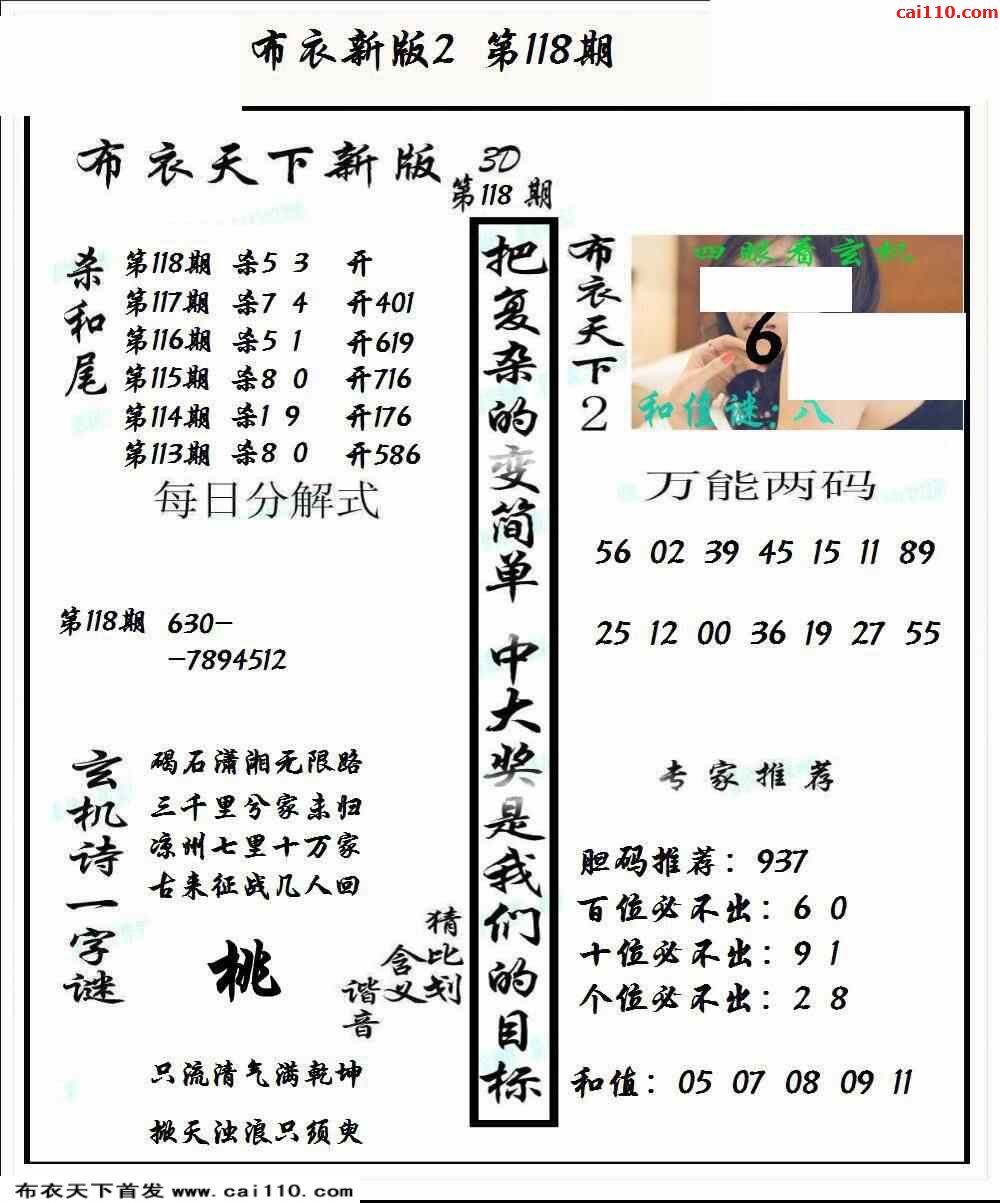 cai110.com
布衣新版2 第118期
布衣天下新版 3D
第118期
杀和尾
第118期 杀5 3 开
第117期 杀7 4 开401
第116期 杀5 1 开619
第115期 杀8 0 开716
第114期 杀1 9 开176
第113期 杀8 0 开586
每日分解式
第118期 630-
-7894512
玄机诗一字谜
碣石潇湘无限路
三千里兮家未归
凉州七里十万家
古来征战几人回
桃
猜比划
含义
谐音
只流清气满乾坤
掀天浊浪只须臾
把复杂的变简单 中大奖是我们的目标
布衣天下2
四眼看玄机
6
和值谜:八
万能两码
56 02 39 45 15 11 89
25 12 00 36 19 27 55
专家推荐
胆码推荐：937
百位必不出：6 0
十位必不出：9 1
个位必不出：2 8
和值：05 07 08 09 11
布衣天下首发 www.cai110.com